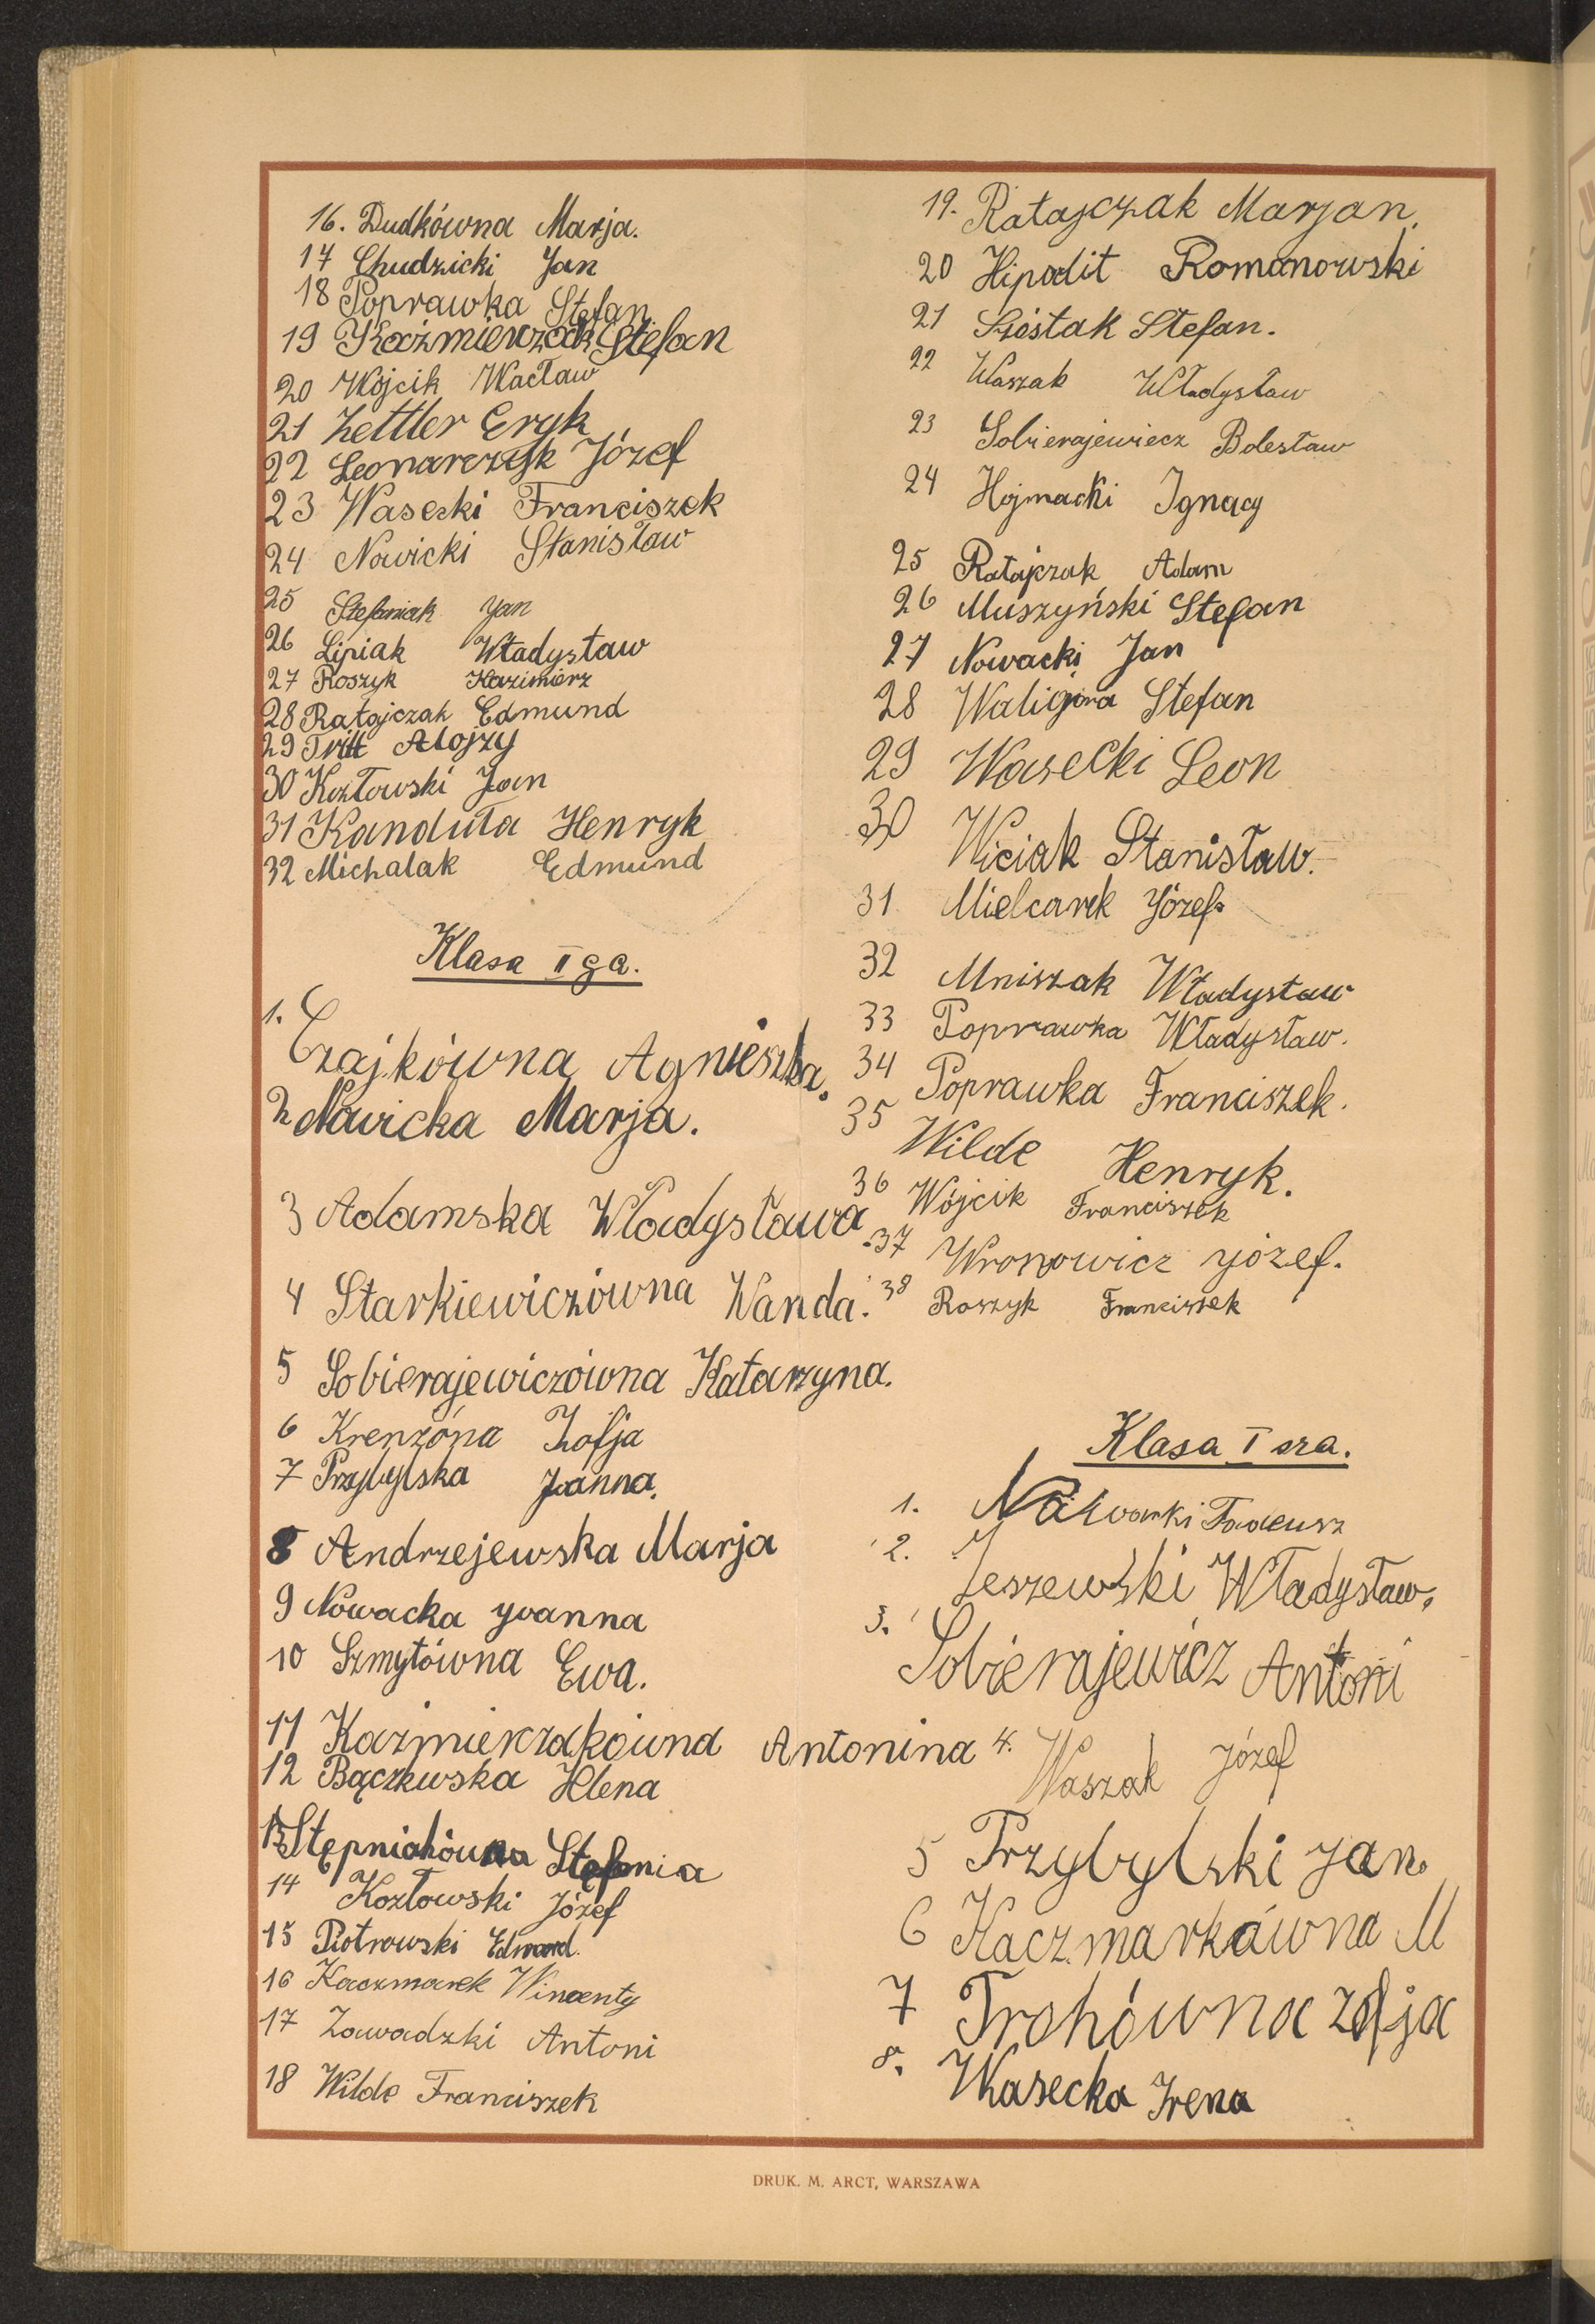 16. Dudkówna Marja.
17 Chudzicki Jan
18 Poprawka Stefan
19 Kaźmierczak Stefan
20 Wójcik Wacław
21 Zettler Eryk
22 Leonarczyk Józef
23 Wasecki Franciszek
24 Nowicki Stanisław
25 Stefaniak Jan
26 Lipiak Władysław
27 Roszyk Kazimierz
28 Ratajczak Edmund
29 Tritt Alojzy
30 Kozłowski Jan
31 Kanduła Henryk
32 Michalak Edmund
Klasa II ga.
1. Czajkówna Agnieszka.
2 Nowicka Marja.
3 Adamska Władysława
4 Starkiewiczówna Wanda.
5 Sobierajewiczówna Katarzyna.
6 Krenzóna Zofja
7 Przybylska Joanna.
8 Andrzejewska Marja
9 Nowacka Joanna
10 Szmytówna Ewa.
11 Kaźmierczakówna Antonina
12 Bączkwska Helena
13 Stępniakówna Stefania
14 Kozłowski Józef
15 Piotrowski Edmund.
16 Kaczmarek Wincenty
17 Zawadzki Antoni
18 Wilde Franciszek
19. Ratajczak Marjan.
20 Hipodit Romanowski
21 Szóstak Stefan.
22 Waszak Władysław
23 Sobierajewiecz Bolesław
24 Hojnacki Ignacy
25 Ratajczak Adam
26 Muszyński Stefan
27 Nowacki Jan
28 Waligóra Stefan
29 Wasecki Leon
30 Wiciak Stanisław.
31 Mielcarek Józef.
32 Mniszak Władysław
33 Poprawka Władysław.
34 Poprawka Franciszek.
35 Wilde Henryk.
36 Wójcik Franciszek
37 Wronowicz Józef.
38 Roszyk Franciszek
Klasa I sza.
1. Tadeusz
2. Jeszewski Władysław,
3. Sobierajewicz Antoni
4. Waszak Józef
5 Przybylski Jan.
6 Kaczmarkówna M
7 Zofja
8. Wasecka Irena
DRUK. M. ARCT, WARSZAWA